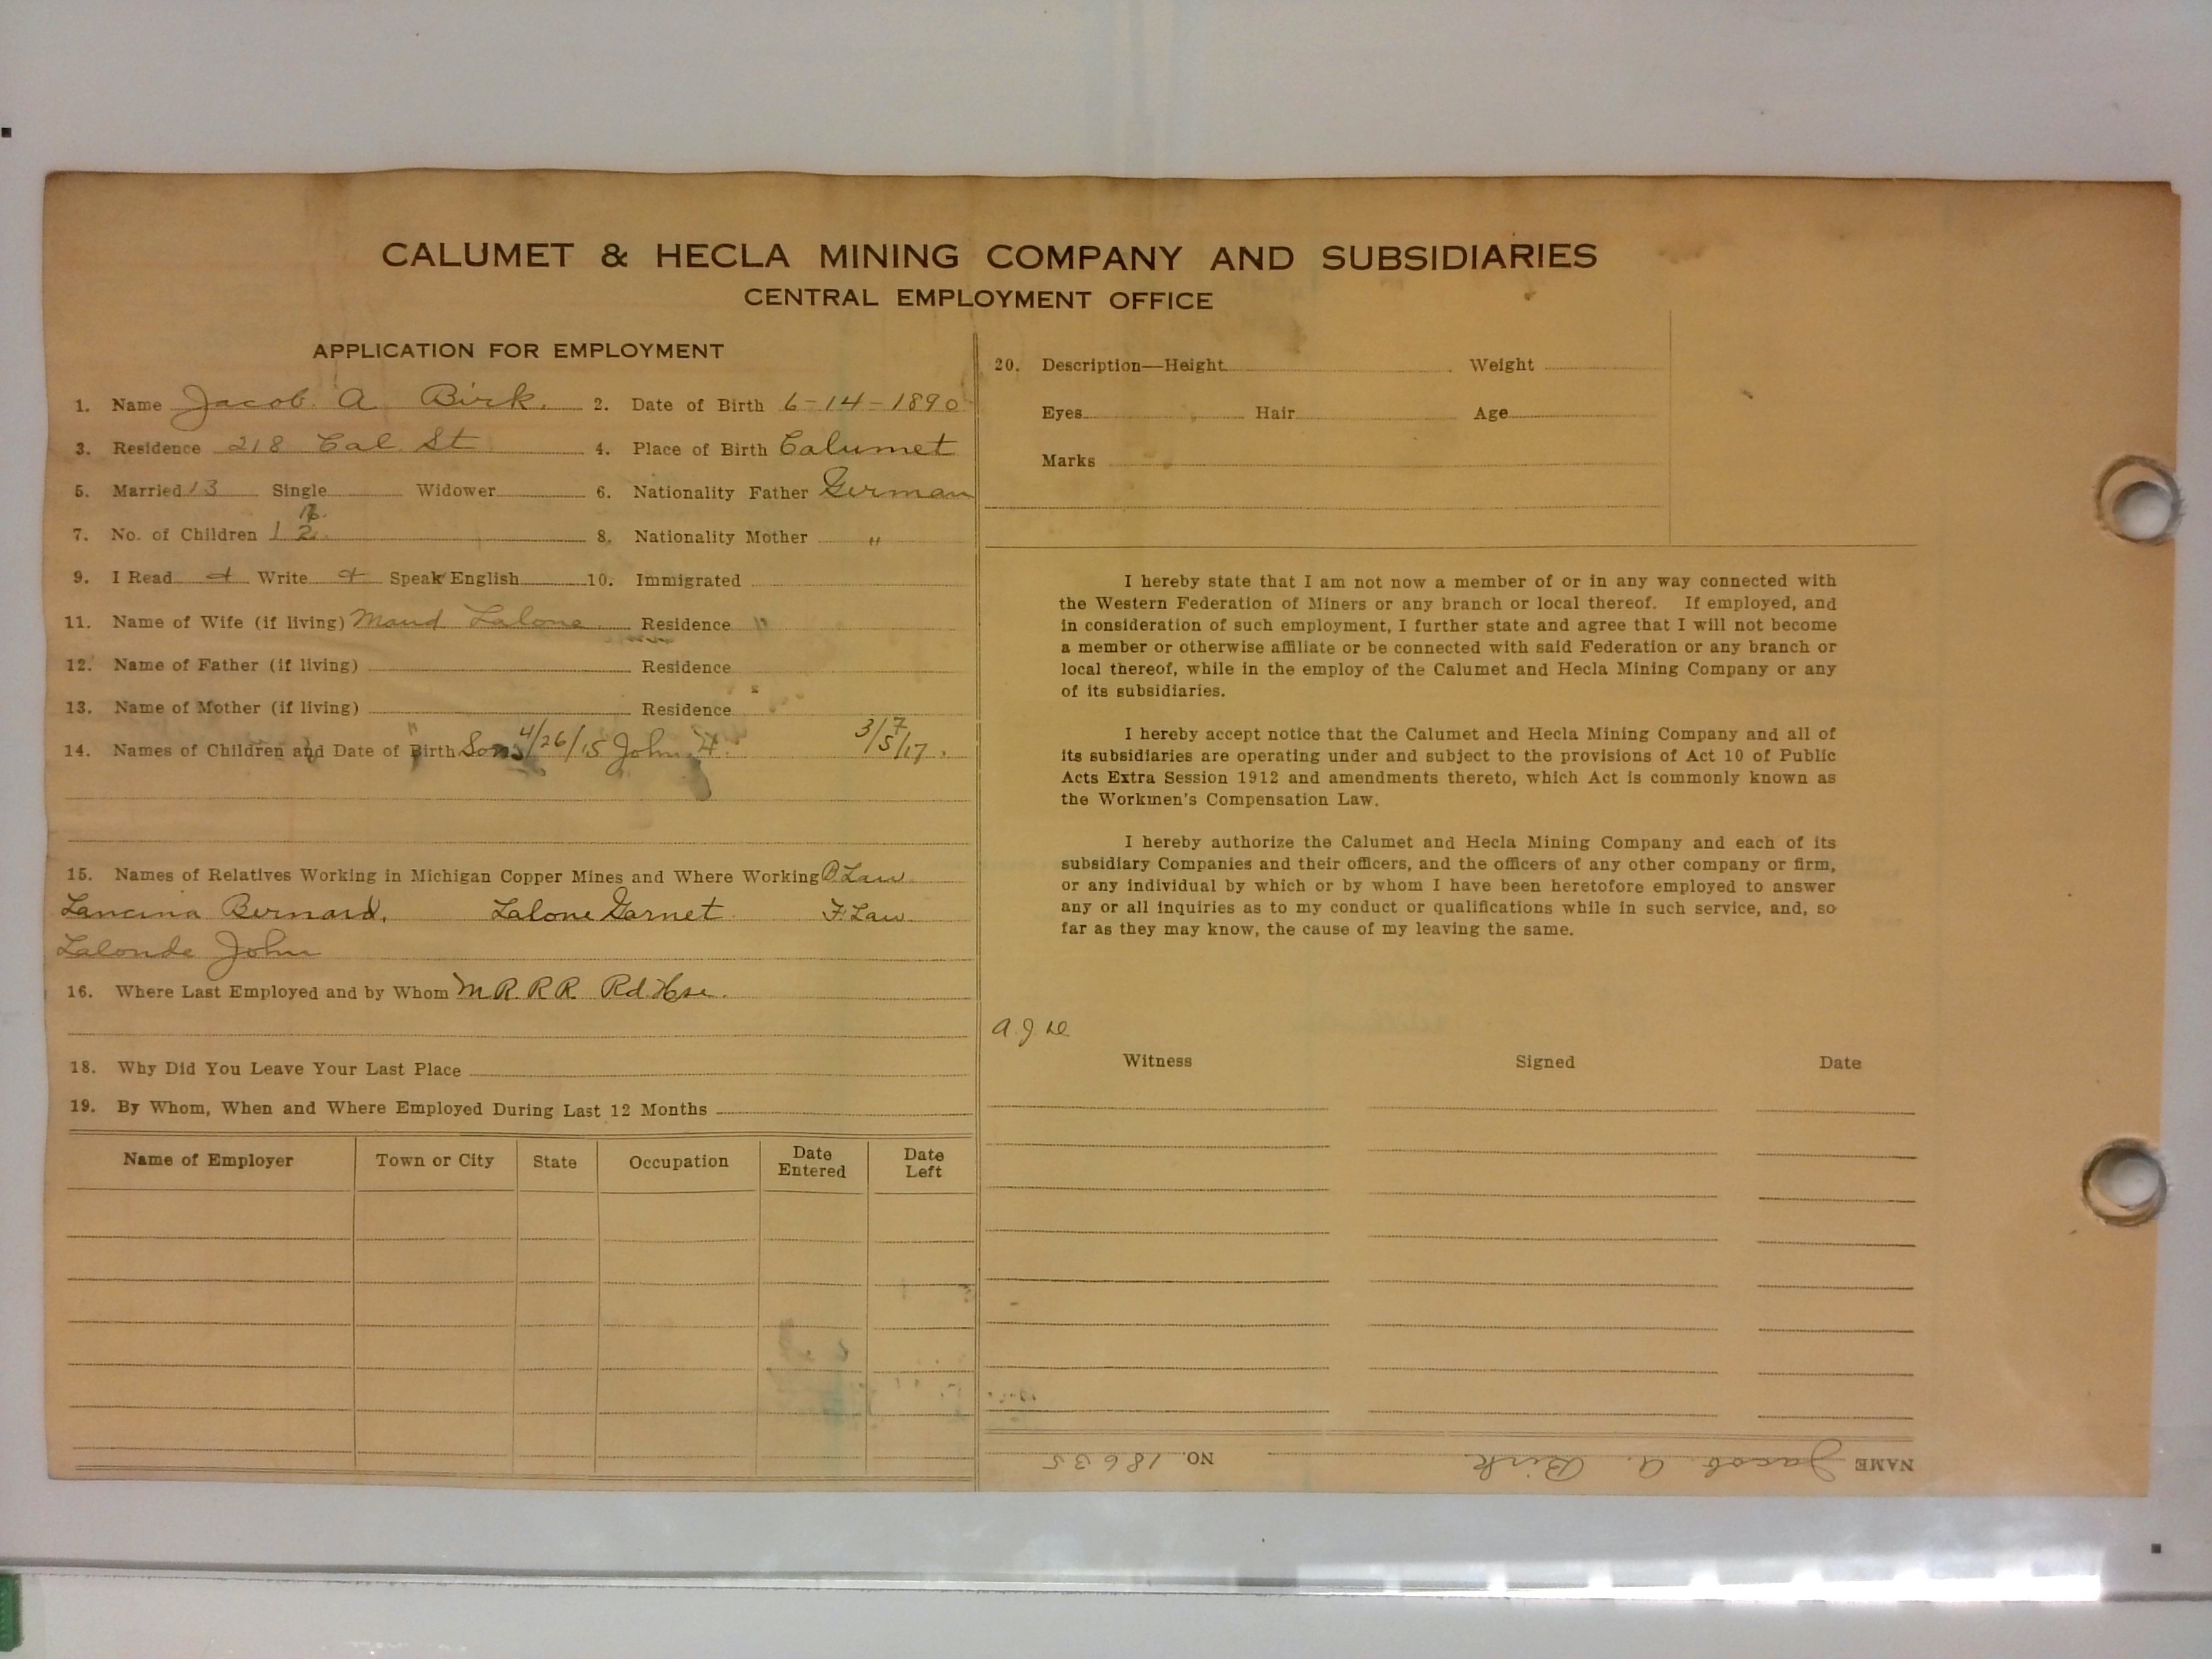 CALUMET & HECLA MINING COMPANY AND SUBSIDIARIES
CENTRAL EMPLOYMENT OFFICE
APPLICATION FOR EMPLOYMENT
1. Name Jacob A Birk. 2. Date of Birth 6-14-1890
3. Residence 218 Cal. St 4. Place of Birth Calumet
5. Married 13 Single Widower 6. Nationality Father German
7. No. of Children 1 2 8. Nationality Mother "
9. I Read + Write + Speak English 10. Immigrated
11. Name of Wife (if living) Maud Lalone Residence "
12. Name of Father (if living) Residence
13. Name of Mother (if living) Residence
14. Names of Children and Date of Birth Son 4/26/15 John 3/5/17.
15. Names of Relatives Working in Michigan Copper Mines and Where Working B.Law
Lancina Bernard, Lalone Garnet F.Law
Lalonde John
16. Where Last Employed and by Whom M R.R.R. Rd. Hse.
18. Why Did You Leave Your Last Place
19. By Whom, When and Where Employed During Last 12 Months
Name of Employer Town or City State Occupation Date Entered Date Left
20. Description—Height Weight
Eyes Hair Age
Marks
I hereby state that I am not now a member of or in any way connected with
the Western Federation of Miners or any branch or local thereof. If employed, and
in consideration of such employment, I further state and agree that I will not become
a member or otherwise affiliate or be connected with said Federation or any branch or
local thereof, while in the employ of the Calumet and Hecla Mining Company or any
of its subsidiaries.
I hereby accept notice that the Calumet and Hecla Mining Company and all of
its subsidiaries are operating under and subject to the provisions of Act 10 of Public
Acts Extra Session 1912 and amendments thereto, which Act is commonly known as
the Workmen's Compensation Law.
I hereby authorize the Calumet and Hecla Mining Company and each of its
subsidiary Companies and their officers, and the officers of any other company or firm,
or any individual by which or by whom I have been heretofore employed to answer
any or all inquiries as to my conduct or qualifications while in such service, and, so
far as they may know, the cause of my leaving the same.
Witness Signed Date
NAME Jacob A. Birk NO. 18635